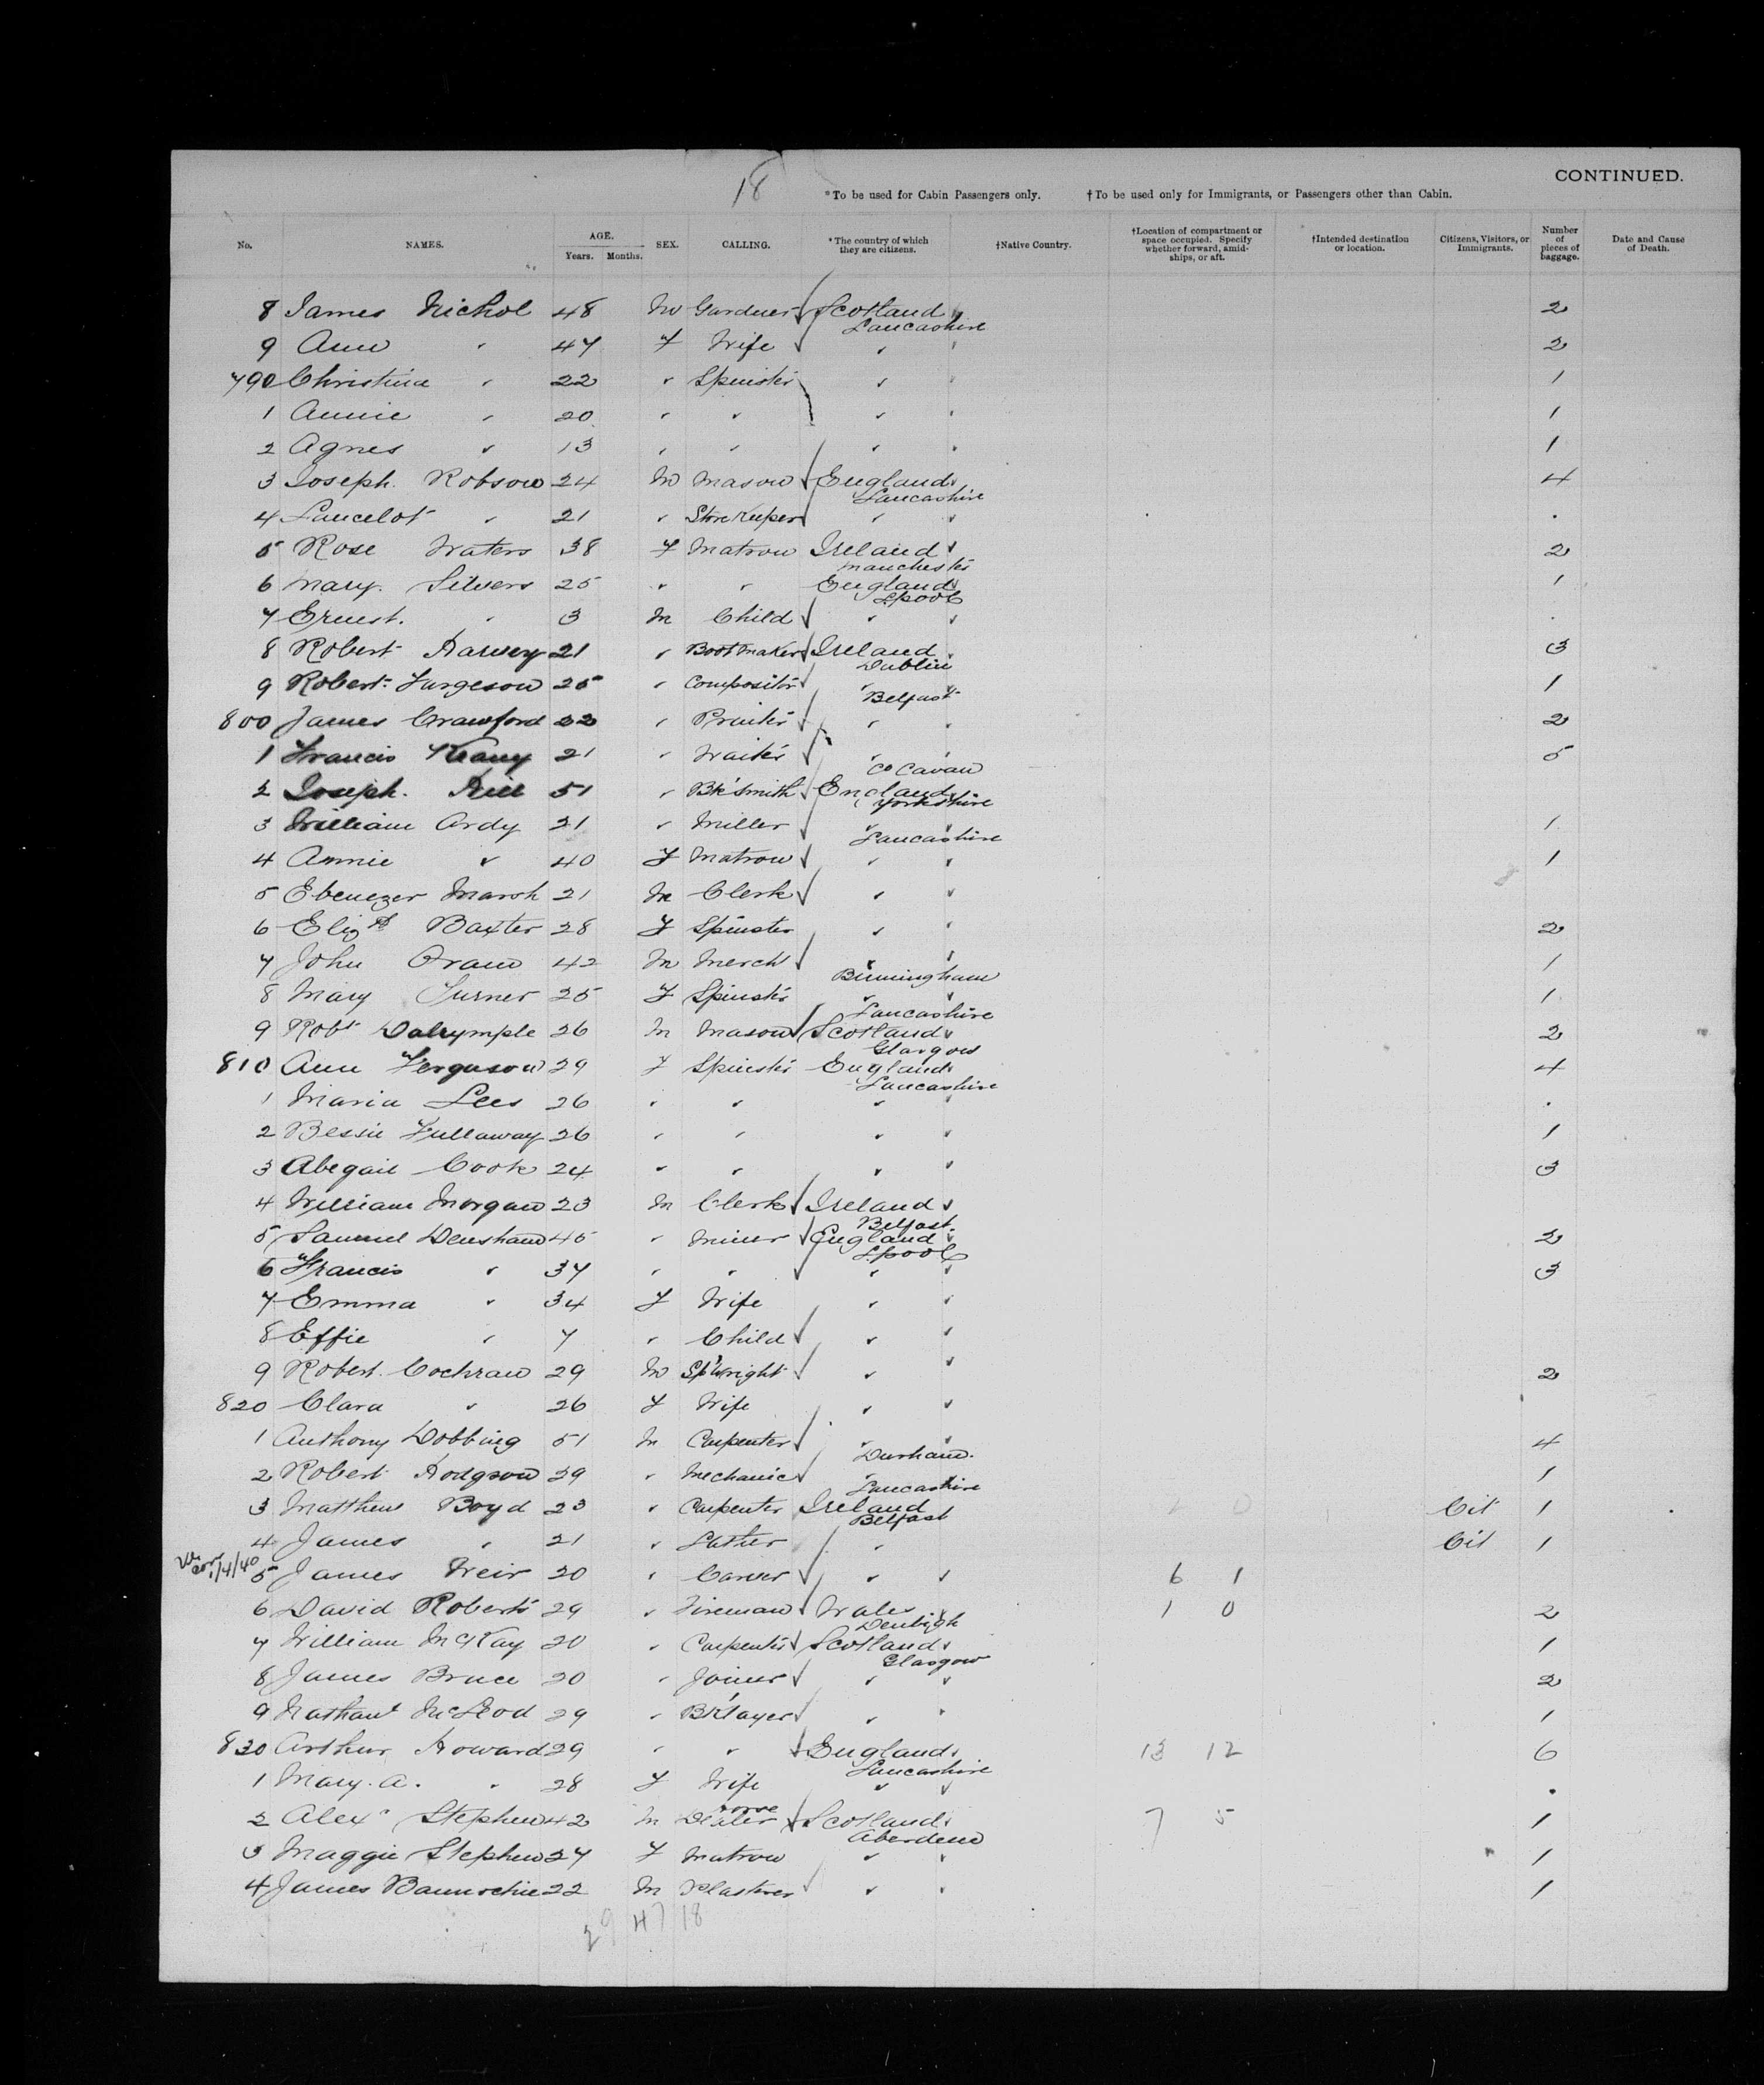 18
CONTINUED.
*To be used for Cabin Passengers only. †To be used only for Immigrants, or Passengers other than Cabin.
No. NAMES. AGE. Years. Months. SEX. CALLING. *The country of which they are citizens. †Native Country. †Location of compartment or space occupied. Specify whether forward, amidships, or aft. †Intended destination or location. Citizens, Visitors, or Immigrants. Number of pieces of baggage. Date and Cause of Death.
8 James Nichol 48 M Gardner Scotland 2
Lancashire
9 Ann " 47 F Wife " " 2
790 Christina " 22 " Spinster " " 1
1 Annie " 20 " " " " 1
2 Agnes " 13 " " " " 1
3 Joseph Robson 24 M Mason England 4
Lancashire
4 Lancelot " 21 " StoreKeeper " " .
5 Rose Waters 38 F Matron Ireland " 2
Manchester
6 Mary Silvers 25 " " England " 1
L'pool
7 Ernest " 3 M Child " " .
8 Robert Harvey 21 " Bootmaker Ireland 3
Dublin
9 Robert Furgeson 25 " Compositor " 1
Belfast
800 James Crawford 22 " Printer " " 2
1 Francis Keany 21 " Waiter " 5
Co Cavan
2 Joseph Hill 51 " Bk'smith England
Yorkshire
3 William Ardy 21 " Miller " " 1
Lancashire
4 Annie " 40 F Matron " " 1
5 Ebenezer Marsh 21 M Clerk " "
6 Elizth Baxter 28 F Spinster " " 2
7 John Oram 42 M Merch't " " 1
Birmingham
8 Mary Turner 25 F Spinster " " 1
Lancashire
9 Robt Dalrymple 26 M Mason Scotland " 2
Glasgow
810 Ann Ferguson 29 F Spinster England 4
Lancashire
1 Maria Lees 26 " " " " .
2 Bessie Fullaway 26 " " " " 1
3 Abegail Cook 24 " " " " 3
4 William Morgan 23 M Clerk Ireland "
Belfast
5 Samuel Denshaw 45 " Miner England " 2
L'pool
6 Francis " 37 " " " " 3
7 Emma " 34 F Wife " "
8 Effie " 7 " Child " "
9 Robert Cochran 29 M Sp'wright " " 2
820 Clara " 26 F Wife " "
1 Anthony Dobbing 51 M Carpenter " " 4
Durham
2 Robert Hodgson 29 " Mechanic " " 1
Lancashire
3 Matthew Boyd 23 " Carpenter Ireland Cit 1
Belfast
4 James " 21 " Lather " Cit 1
1/4/40
5 James Weir 20 " Carver " " 6 1
6 David Roberts 29 " Fireman Wales " 1 0 2
Denbigh
7 William McKay 20 " Carpenter Scotland " 1
Glasgow
8 James Bruce 20 " Joiner " " 2
9 Nathanl McLeod 29 " Bk'layer " " 1
830 Arthur Howard 29 " " England 13 12 6
Lancashire
1 Mary A. " 28 F Wife " " .
2 Alexr Stephen 42 M Horse Dealer Scotland 7 5 1
Aberdeen
3 Maggie Stephen 27 F Matron " " 1
4 James 22 M Plasterer " " 1
29 47 18